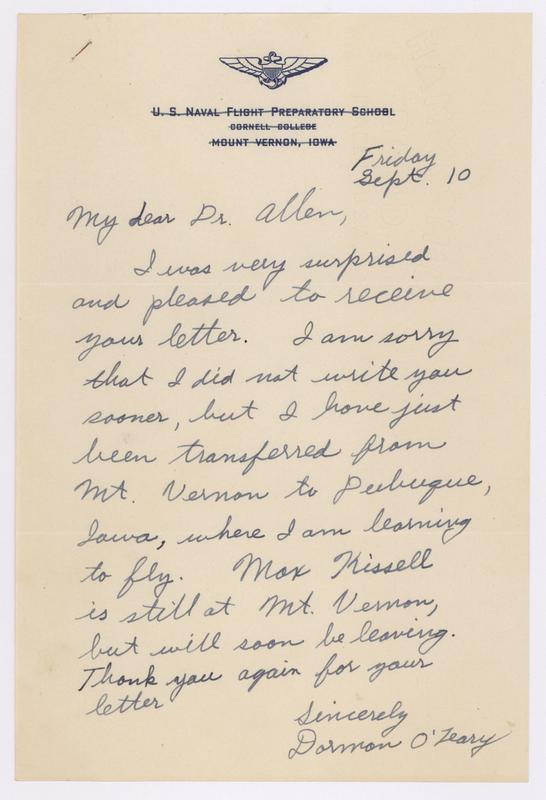 U. S. NAVAL FLIGHT PREPARATORY SCHOOL
CORNELL COLLEGE
MOUNT VERNON, IOWA
Friday
Sept. 10
My dear Dr. Allen,
I was very surprised
and pleased to receive
your letter. I am sorry
that I did not write you
sooner, but I have just
been transferred from
Mt. Vernon to Dubuque,
Iowa, where I am learning
to fly. Max Kissell
is still at Mt. Vernon,
but will soon be leaving.
Thank you again for your
letter
Sincerely
Dorman O'Leary